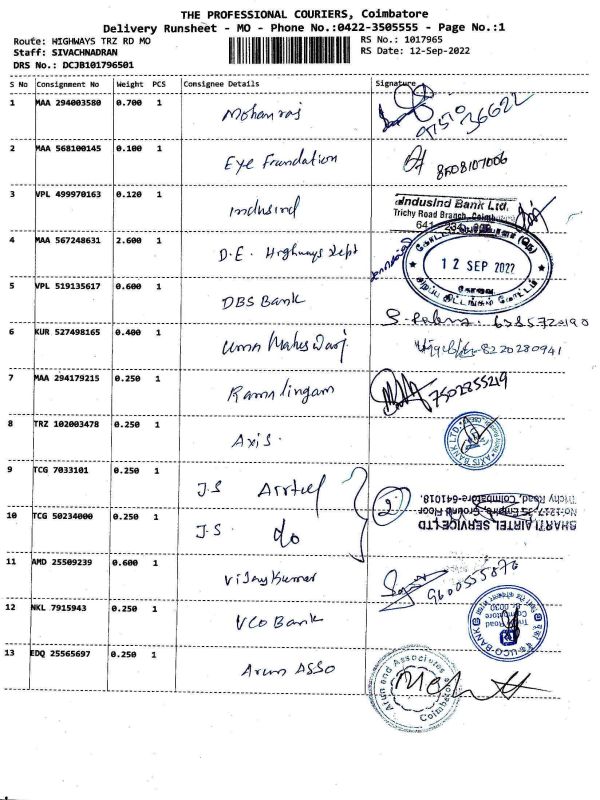 THE PROFESSIONAL COURIERS, Coimbatore
Delivery Runsheet - MO - Phone No.:0422-3505555 - Page No.:1
Route: HIGHWAYS TRZ RD MO
RS No.: 1017965
Staff: SIVACHNADRAN
RS Date: 12-Sep-2022
DRS No.: DCJB101796501
S No Consignment No Weight PCS Consignee Details Signature
1 MAA 294003580 0.700 1 Mohanraj
36622
2 MAA 568100145 0.100 1 Eye Foundation
3 VPL 499970163 0.120 1 indusind
IndusInd Bank Ltd.
Trichy Road Branch, Coimbatore
4 MAA 567248631 2.600 1 D.E. Highways Dept
12 SEP 2022
5 VPL 519135617 0.600 1 DBS Bank
6 KUR 527498165 0.400 1 Uma Maheswari
8220280941
7 MAA 294179215 0.250 1 Ramalingam
8 TRZ 102003478 0.250 1 Axis.
AXIS BANK LTD.
9 TCG 7033101 0.250 1 J.S Airtel
2
10 TCG 50234000 0.250 1 J.S. do
BHARTI AIRTEL SERVICE LTD
Ground Floor
Trichy Road, Coimbatore-641018.
11 AMD 25509239 0.600 1 Vijaykumar
12 NKL 7915943 0.250 1 UCO Bank
UCO-BANK
Trichy Road
Coimbatore
13 EDQ 25565697 0.250 1 Arun ASSO
Arun and Associates
Coimbatore